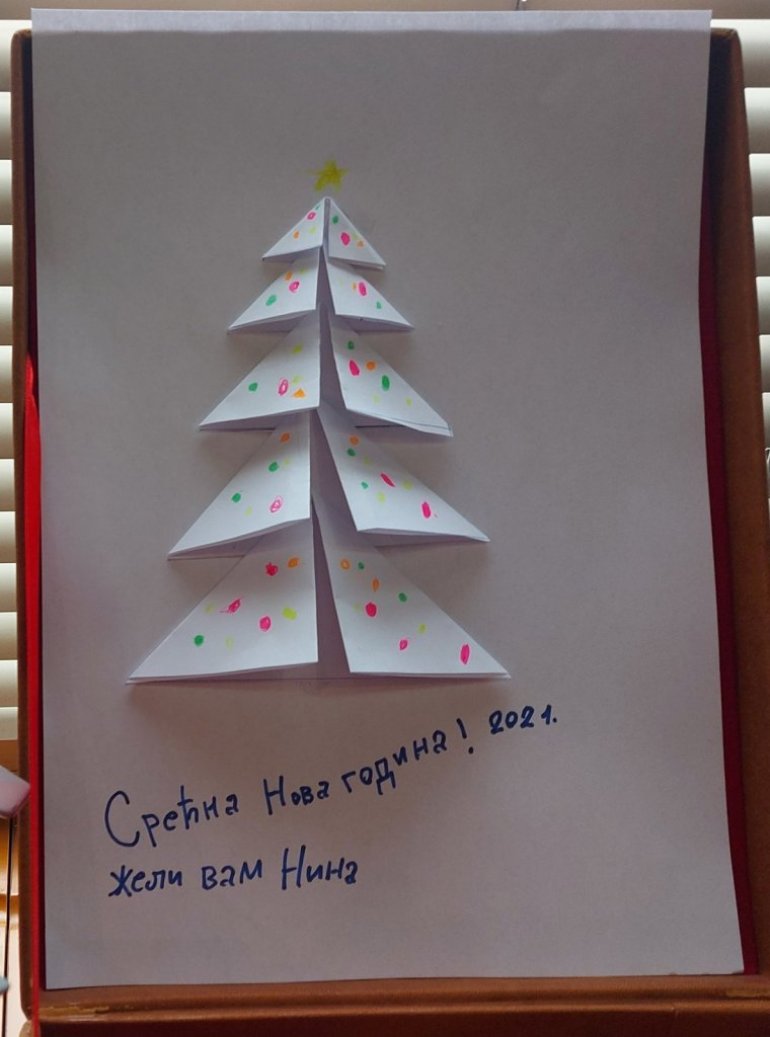 Срећна Нова година! 2021.
жели вам Нина